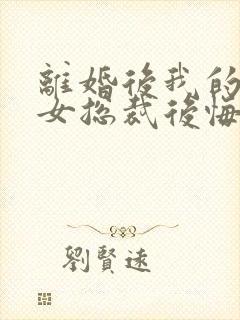 離婚後我的
女总裁後悔
劉賢遠